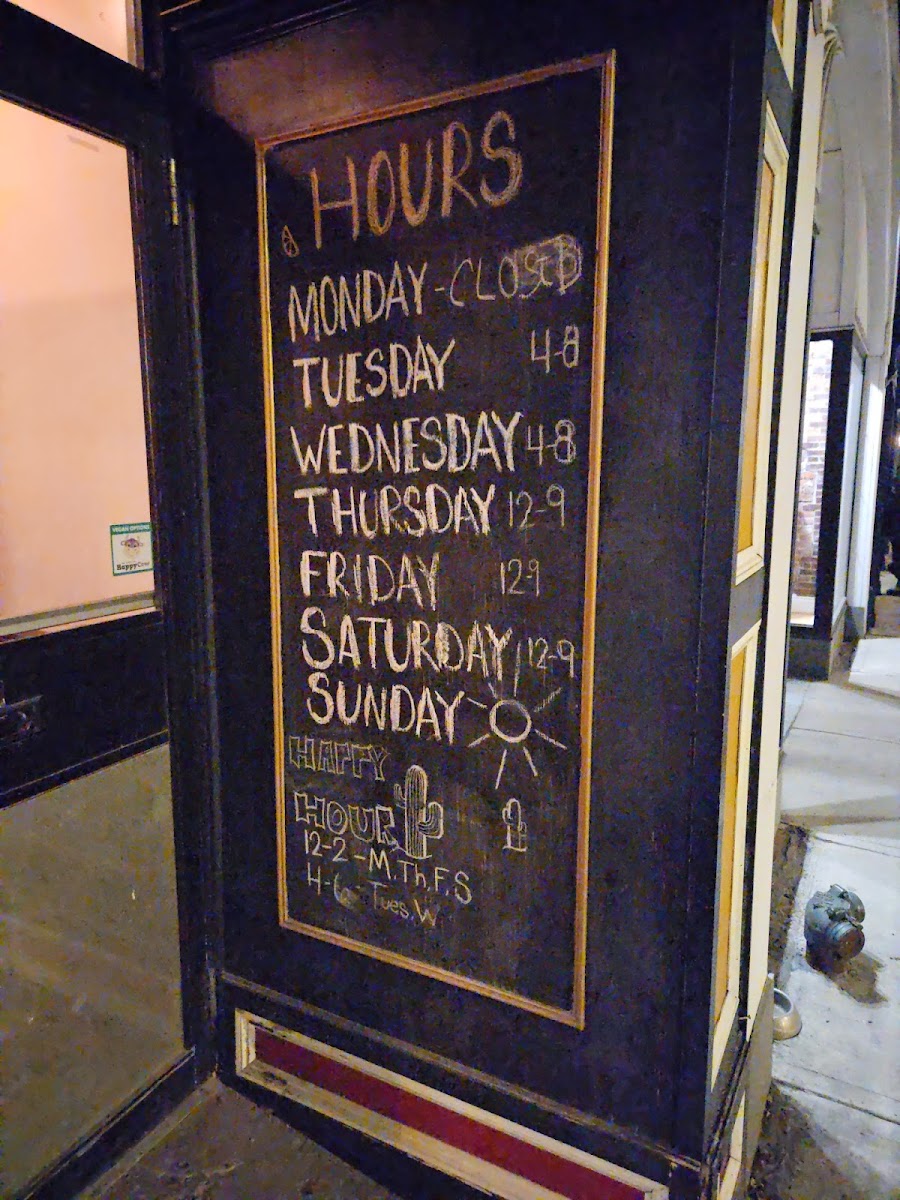 HOURS
MONDAY - CLOSED
TUESDAY 4-8
WEDNESDAY 4-8
THURSDAY 12-9
FRIDAY 12-9
SATURDAY 12-9
SUNDAY
HAPPY
HOUR
12-2 - M, Th, F, S
4-6 - Tues, W
VEGAN OPTIONS
HappyCow